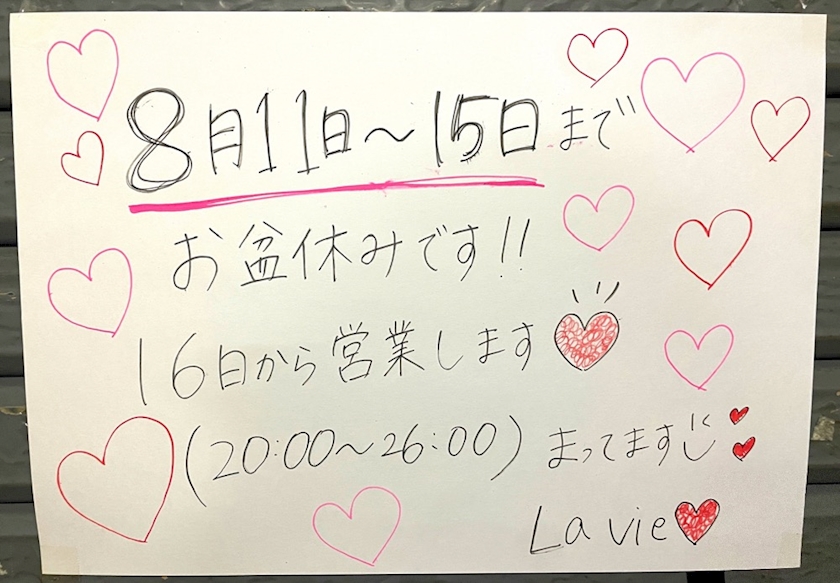 8月11日～15日まで
お盆休みです!!
16日から営業します
(20:00～26:00) まってます
La vie